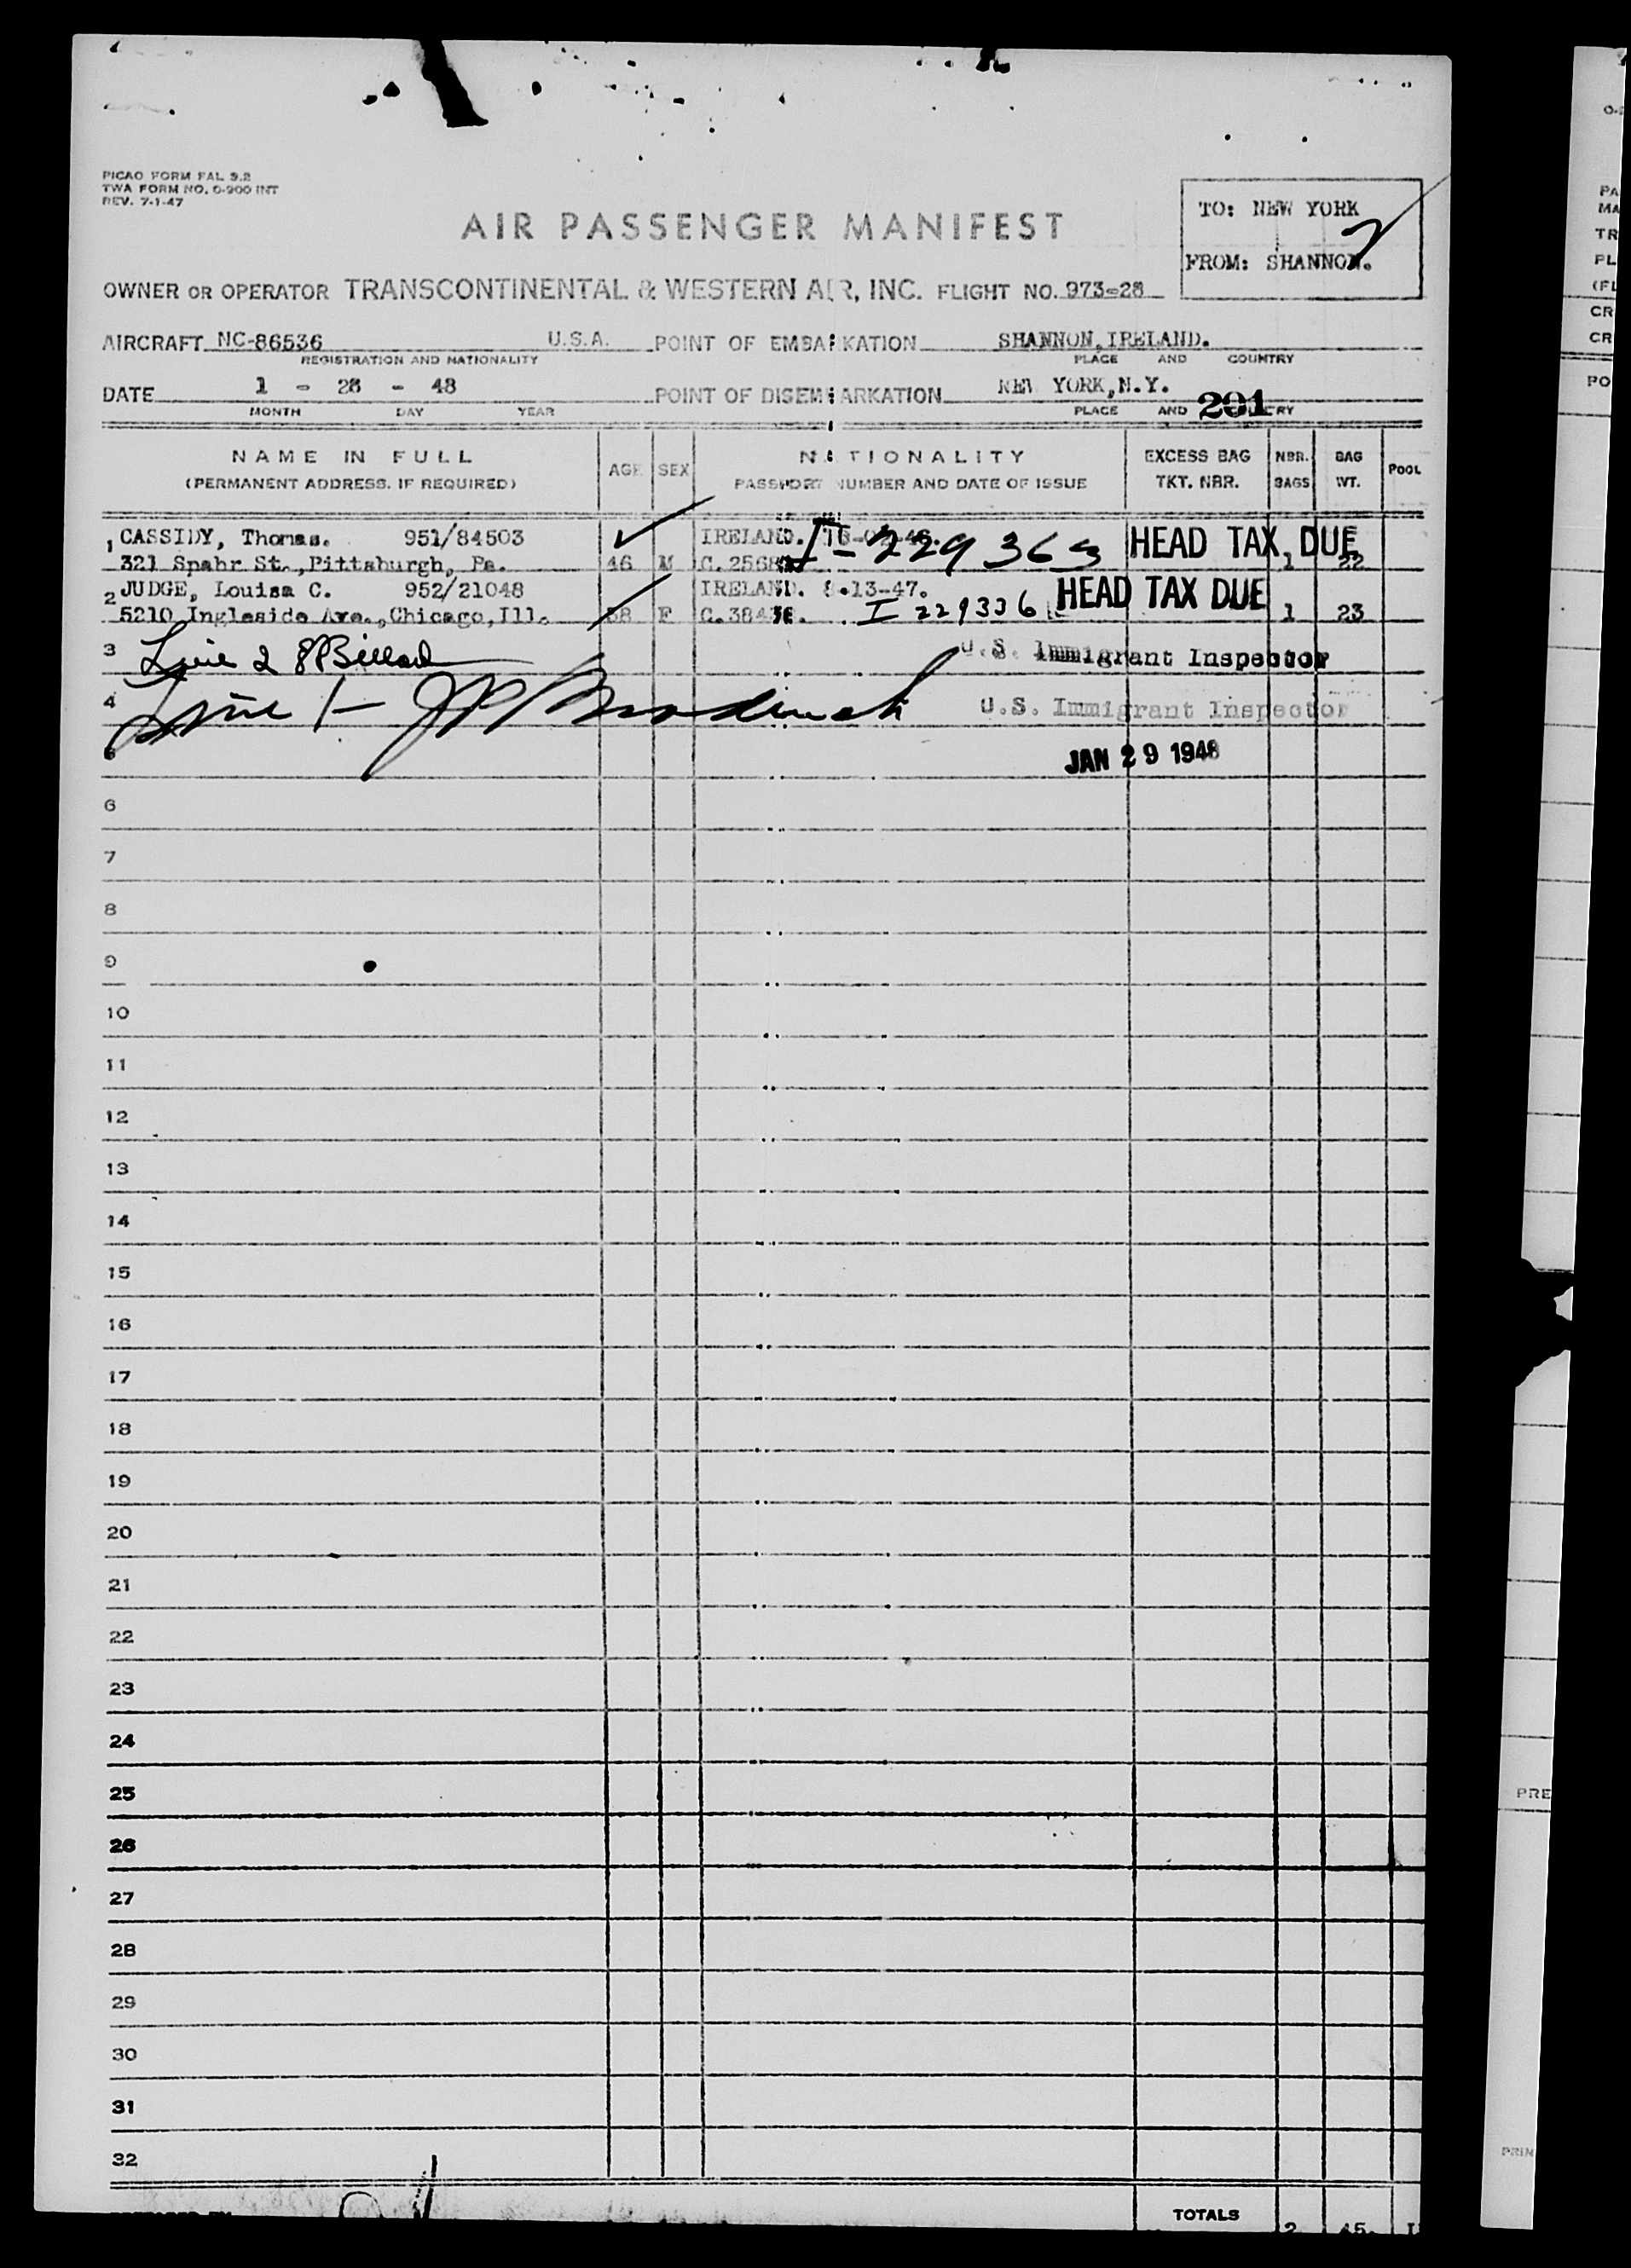 PICAO FORM FAL 3.2
TWA FORM NO. O-900 INT
REV. 7-1-47
TO: NEW YORK
FROM: SHANNON.
AIR PASSENGER MANIFEST
OWNER OR OPERATOR TRANSCONTINENTAL & WESTERN AIR, INC. FLIGHT NO. 973-28
AIRCRAFT NC-86536 U.S.A. POINT OF EMBARKATION SHANNON, IRELAND.
REGISTRATION AND NATIONALITY PLACE AND COUNTRY
DATE 1 - 28 - 48 POINT OF DISEMBARKATION NEW YORK, N.Y.
MONTH DAY YEAR PLACE AND 201
NAME IN FULL AGE SEX NATIONALITY EXCESS BAG NBR. BAG POOL
(PERMANENT ADDRESS, IF REQUIRED) PASSPORT NUMBER AND DATE OF ISSUE TKT. NBR. BAGS WT.
1 CASSIDY, Thomas. 951/84503 IRELAND. I-229363 HEAD TAX DUE
321 Spahr St., Pittsburgh, Pa. 46 M 1 22
2 JUDGE, Louisa C. 952/21048 IRELAND. 8-13-47. HEAD TAX DUE
5210 Ingleside Ave., Chicago, Ill. F I 229336 1 23
3 Line 2 U.S. Immigrant Inspector
4 Line 1- U.S. Immigrant Inspector
5 JAN 29 1948
6
7
8
9
10
11
12
13
14
15
16
17
18
19
20
21
22
23
24
25
26
27
28
29
30
31
32
TOTALS 2 45.